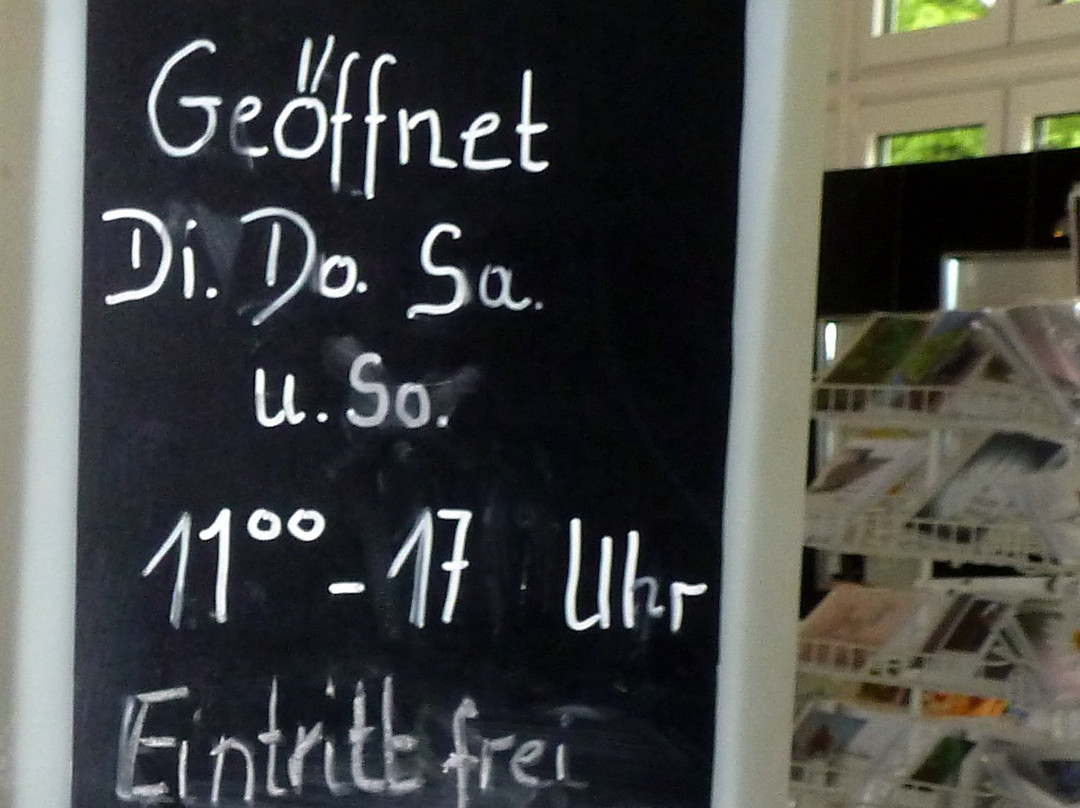 Geöffnet
Di. Do. Sa.
u. So.
11⁰⁰ - 17 Uhr
Eintritt frei